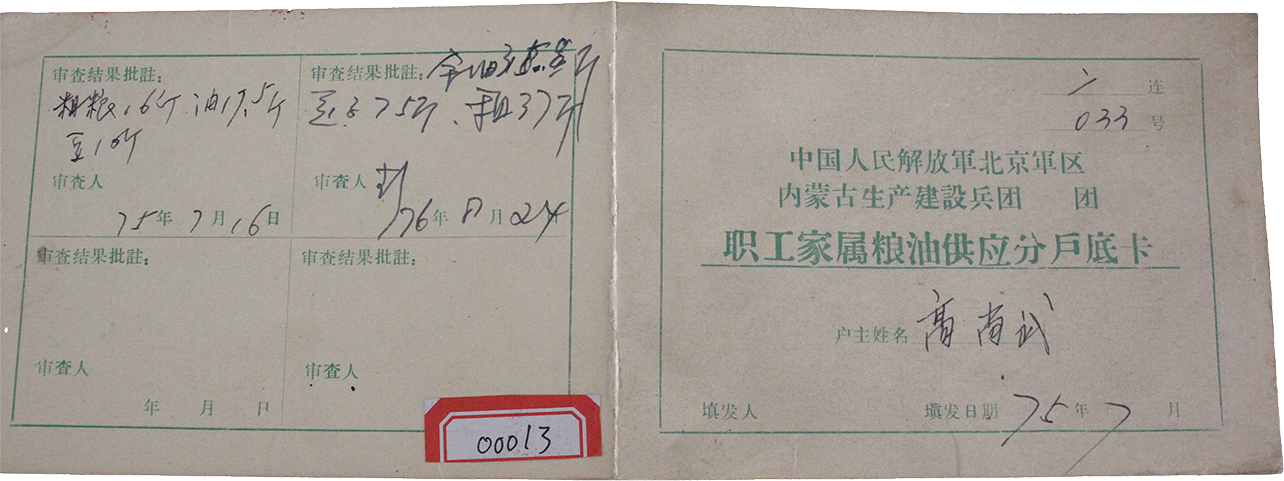 审查结果批註：
粗粮16斤 油17.5斤
豆10斤
审查人
75年7月16日
审查结果批註：
豆子75斤、粗37斤
审查人
76年8月24
审查结果批註：
审查人
年 月 日
审查结果批註：
审查人
00013
连
033号
中国人民解放軍北京軍区
内蒙古生产建設兵团 团
职工家属粮油供应分戶底卡
户主姓名 高尚武
填发人 填发日期75年7月